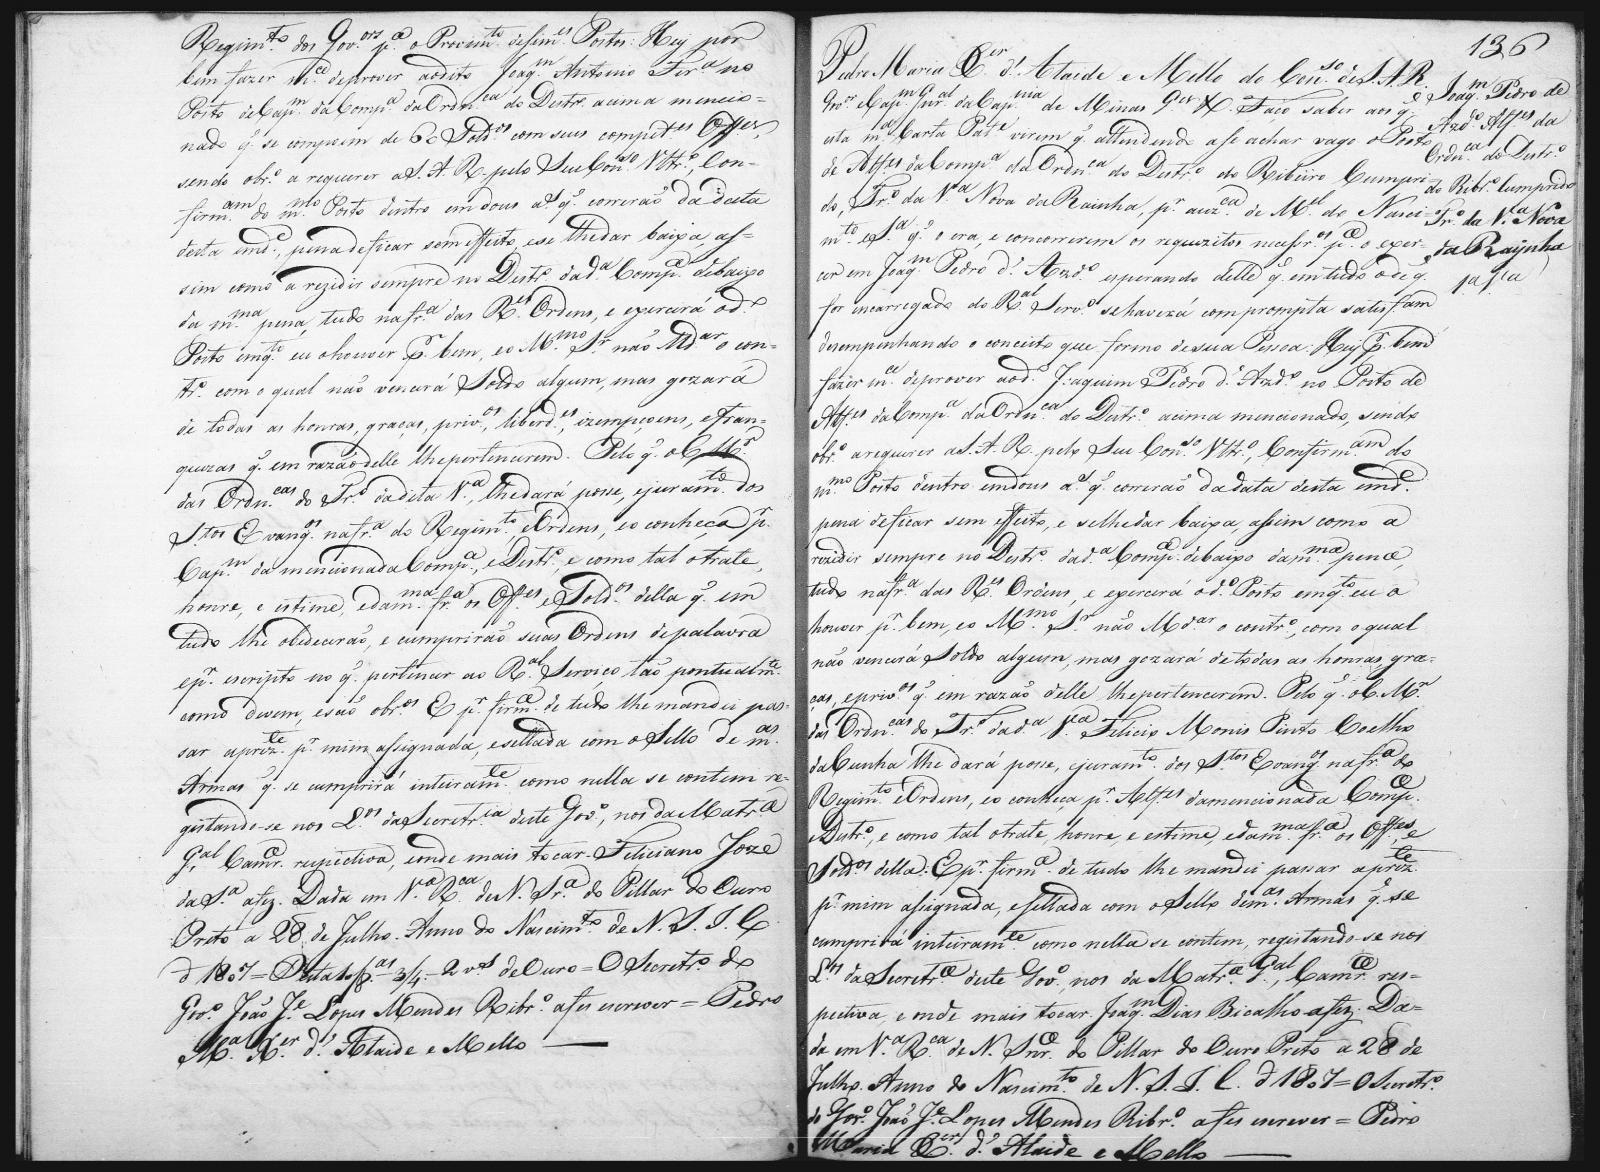 Regim.to dos Gov.ors p.a o Provim.to desim.es Postos: Hey por
bem fazer m.ce deprover aodito Joaq.m Antonio Fer.a no
Posto deCap.m daComp.a daOrdn.ca do Destr.o acima mencio=
nado q.' se compoem de 60 Sold.os com seus compet.es Off.es,
sendo obr.o a requerer a S. A. R. pelo SeuCons.o Ultr.o, Con=
firm.am do m.mo Posto dentro em dous a.s q.' correráõ da data
desta em d.e, pena deficar sem effeito, e se lhe dar baixa, as=
sim como a rezidir sempre no Destr.o dad.a Comp.a debaixo
da m.ma pena, tudo nafr.a das R.es Ordens, e exercerá o d.o
Posto emq.to eu o houver p.r bem, eo M.mo S.r não M.dar o con=
tr.o com o qual não vencerá Soldo algum, mas gozará
de todas as honras, graças, priv.os, liberd.es, izempçoens, efran=
quezas q.' em razaõ delle lhepertencerem. Pelo q.' o C. M.r
das Ordn.cas do Tr.o dadita V.a, lhedará posse, ejuram.to dos
S.tos Evang.os nafr.a do Regim.to, eOrdens, eo conheça p.r
Cap.m da mencionada Comp.a, eDestr.o, e como tal o trate,
honre, e estime, edam.ma fr.a os Off.es eSold.os della q.' em
tudo lhe obdeceráõ, e cumpriráõ suas Ordens depalavra
ep.r escripto no q.' pertencer ao R.al Serviço taõ pontualm.te
como devem, esaõ obr.os E p.r firm.a de tudo lhe mandei pas=
sar aprez.te p.r mim assignada, esellada com o Sello de m.as
Armas q.' se cumprirá inteiram.te como nella se contem re=
gistando-se nos L.os da Secretr.ia deste Gov.o, nos da Matr.a
G.al, Camr.a respectiva, eonde mais tocar. Feliciano Joze
da S.a afez. Dada em V.a R.ca de N. Sr.a do Pillar do Ouro
Preto a 28 de Julho. Anno do Nascim.to de N. S. J. C.
d' 1807= 3/4 - 2 v.s deOuro= O Secretr.o do
Gov.o Joaõ J.e Lopes Mendes Ribr.o afes escrever = Pedro
M.a X.er d' Ataide e Mello
136
Pedro Maria X.er d' Ataide e Mello do Cons.o de S. A. R.
Gov.or eCap.m Gnr.al daCap.nia de Minas G.es &. Faço saber aos q.'
esta m.a Carta Pat.e virem q.' attendendo a se achar vago o Posto
de Alf.es daComp.a daOrdn.ca do Destr.o do Ribeiro Cumpri=
do, Tr.o da V.a Nova da Rainha, p.r auz.ca de M.el do Nasci=
m.to eS.a q.' o era, e concorrerem os requezitos necessr.os p.a o exer=
cer em Joaq.m Pedro d' Azd.o esperando delle q.' em tudo o de q.'
for encarregado do R.al Serv.o sehaverá com prompta satisfam
dezempenhando o conceito que formo desua Pessoa: Hey p.r bem
fazer m.ce deprover aod.o Joaquim Pedro d' Azd.o no Posto de
Alf.es daComp.a daOrdn.ca do Destr.o acima mencionado, sendo
obr.o arequerer a S. A. R. pelo Seu Con.so Ultr.o, Confirm.am do
m.mo Posto dentro emdous a.s q.' correráõ dadata desta em d.e
pena deficar sem effeito, e selhedar baixa, assim como a
rezidir sempre no Destr.o dad.a Comp.a debaixo dam.ma pena,
tudo nafr.a das R.es Ordens, e exercerá od.o Posto emq.to eu o
houver p.r bem, eo M.mo S.r não M.dar o contr.o, com o qual
não vencerá Soldo algum, mas gozará detodas as honras, gra=
ças, epriv.os q.' em razaõ delle lhepertencerem. Pelo q.' o C. M.r
das Ordn.cas do Tr.o dad.a V.a Felicio Monis Pinto Coelho
daCunha lhe dará posse, ejuram.to dos S.tos Evang.os nafr.a do
Regim.to eOrdens, eo conheça p.r Alf.es damencionada Comp.a
eDistr.o, e como tal otrate, honre, e estime, edam.ma fr.a os Off.es, e
Sold.os della: E p.r firm.a de tudo lhe mandei passar aprez.te
p.r mim assignada, esellada com oSello dem.as Armas q.' se
cumprirá inteiram.te como nella se contem, registando-se nos
L.os da Secretr.a deste Gov.o, nos da Matr.a G.al, Camr.a res=
pectiva, eonde mais tocar. Joaq.m Dias Bicalho afez. Da=
da em V.a R.ca de N. Snr.a do Pillar do Ouro Preto a 28 de
Julho. Anno do Nascim.to de N. S. J. C. d' 1807= O Secretr.o
do Gov.o Joaõ J.e Lopes Mendes Ribr.o afes escrever = Pedro
Maria X.er d' Ataide e Mello
Joaq.m Pedro de
Azd.o Alf.es da
Ordn.ca do Destr.o
do Ribr.o Cumprido
Tr.o da V.a Nova
da Raynha